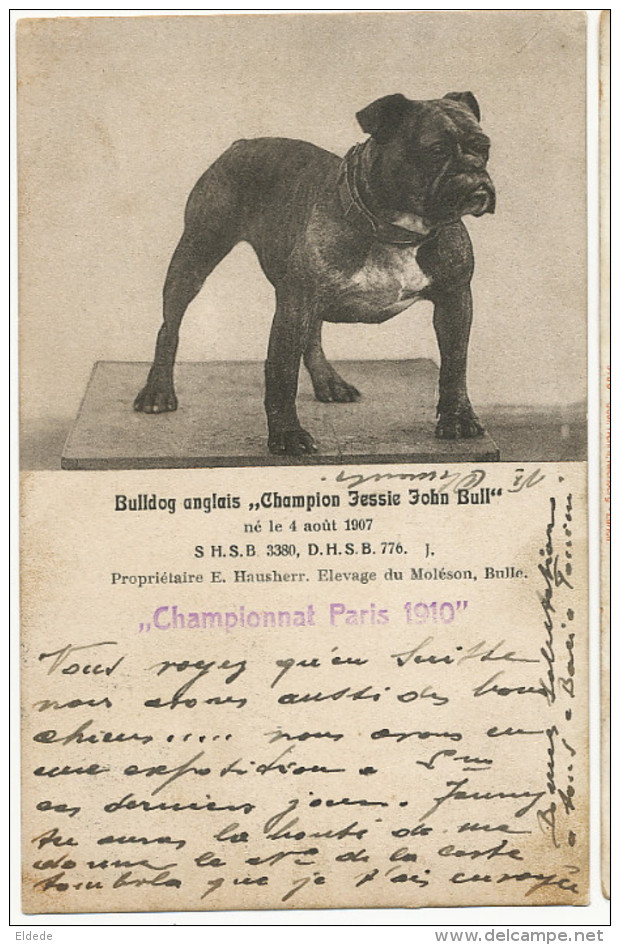 Bulldog anglais „Champion Jessie John Bull“
né le 4 août 1907
S H.S.B 3380, D.H.S.B. 776. J.
Propriétaire E. Hausherr. Elevage du Moléson, Bulle.
„Championnat Paris 1910”
Vous voyez qu'en Suisse
nous avons aussi des bons
chiens..... nous avons eu
une exposition a
ces derniers jours. Jenny
tu auras la bonté de me
donner le No de la carte
tombola que je t'ais envoyée
Bonnes Salutations
a tous
Eldede
www.delcampe.net